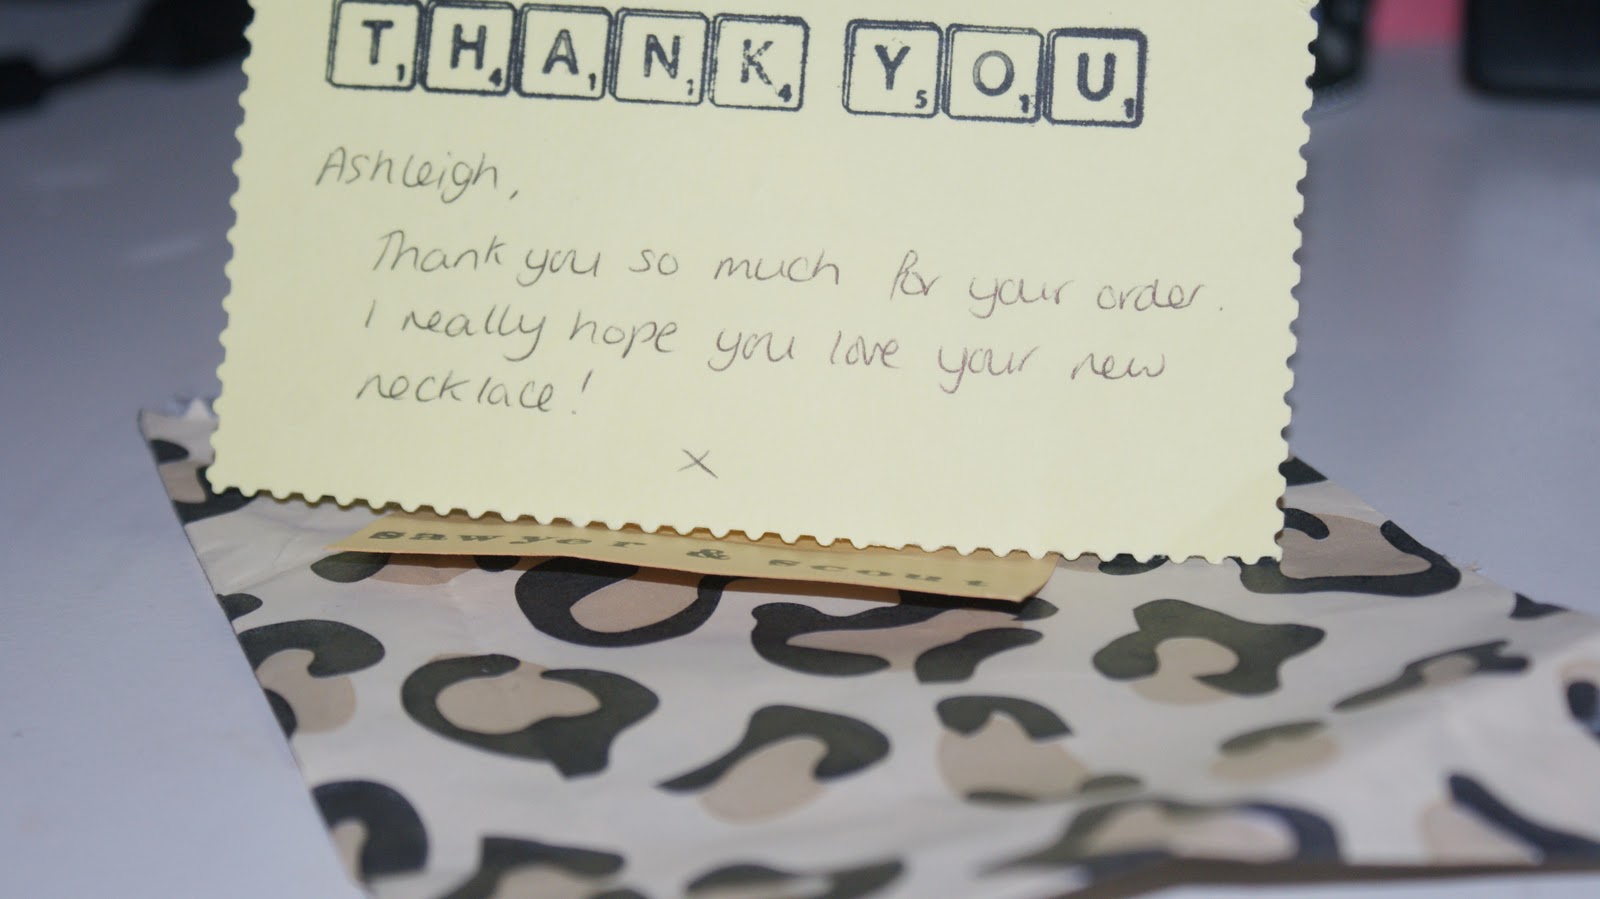 T1 H4 A1 N1 K4 Y5 O1 U1
Ashleigh,
Thank you so much for your order.
I really hope you love your new
necklace!
x
sawyer & scout